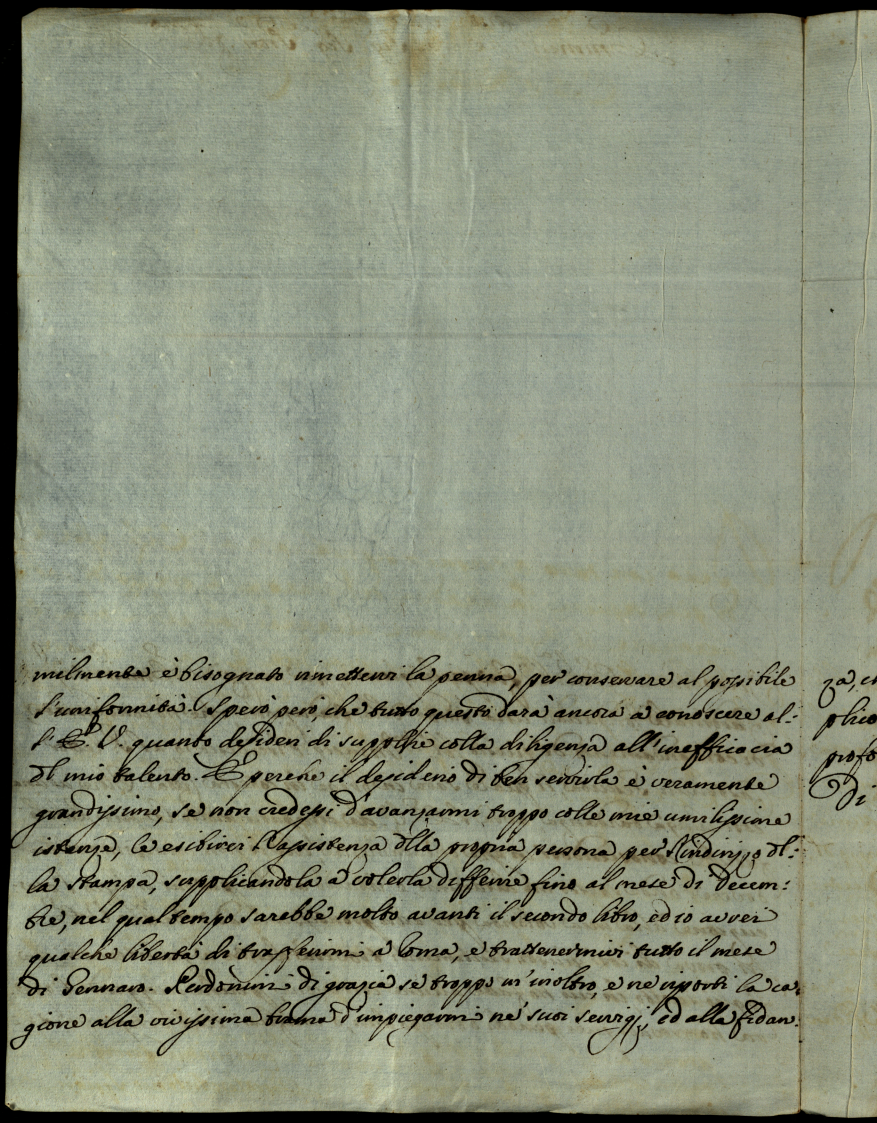 milmente è bisognato rimettervi la penna, per conservare al possibile
l'uniformità. Spero però, che tutto questo darà ancora a conoscere al-
l'E. V. quanto desideri di supplire colla diligenza all'inefficacia
dl mio talento. E perche il desiderio di ben servirla è veramente
grandissimo, se non credessi d'avanzarmi troppo colle mie umilissime
istanze, le esibirei l'assistenza dlla propria persona per l'indirizzo dl-
la stampa, supplicandola à volerla differire fino al mese di Decem-
bre, nel qual tempo sarebbe molto avanti il secondo libro, ed io avrei
qualche libertà di trasferirmi a Roma, e trattenermivi tutto il mese
di Gennaro. Perdonimi di grazia se troppo m'inoltro, e ne riporti la ca-
gione alla vivissima brama d'impiegarmi ne' suoi servigj, ed alla fidan-
za, ch
plico
profo
Di